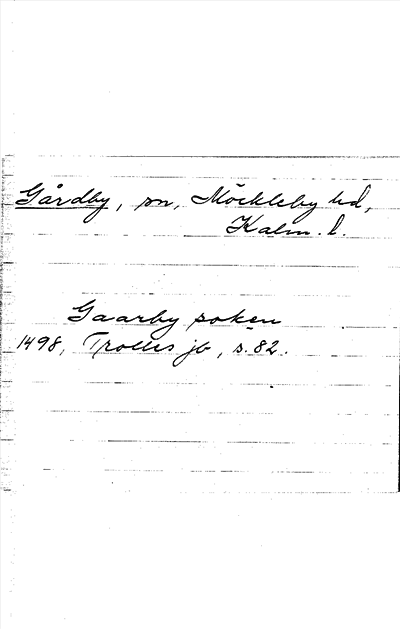 Gårdby, sn, Möckleby hd,
Kalm. l.
Gaarby soken
1498, Trolles jb, s. 82.